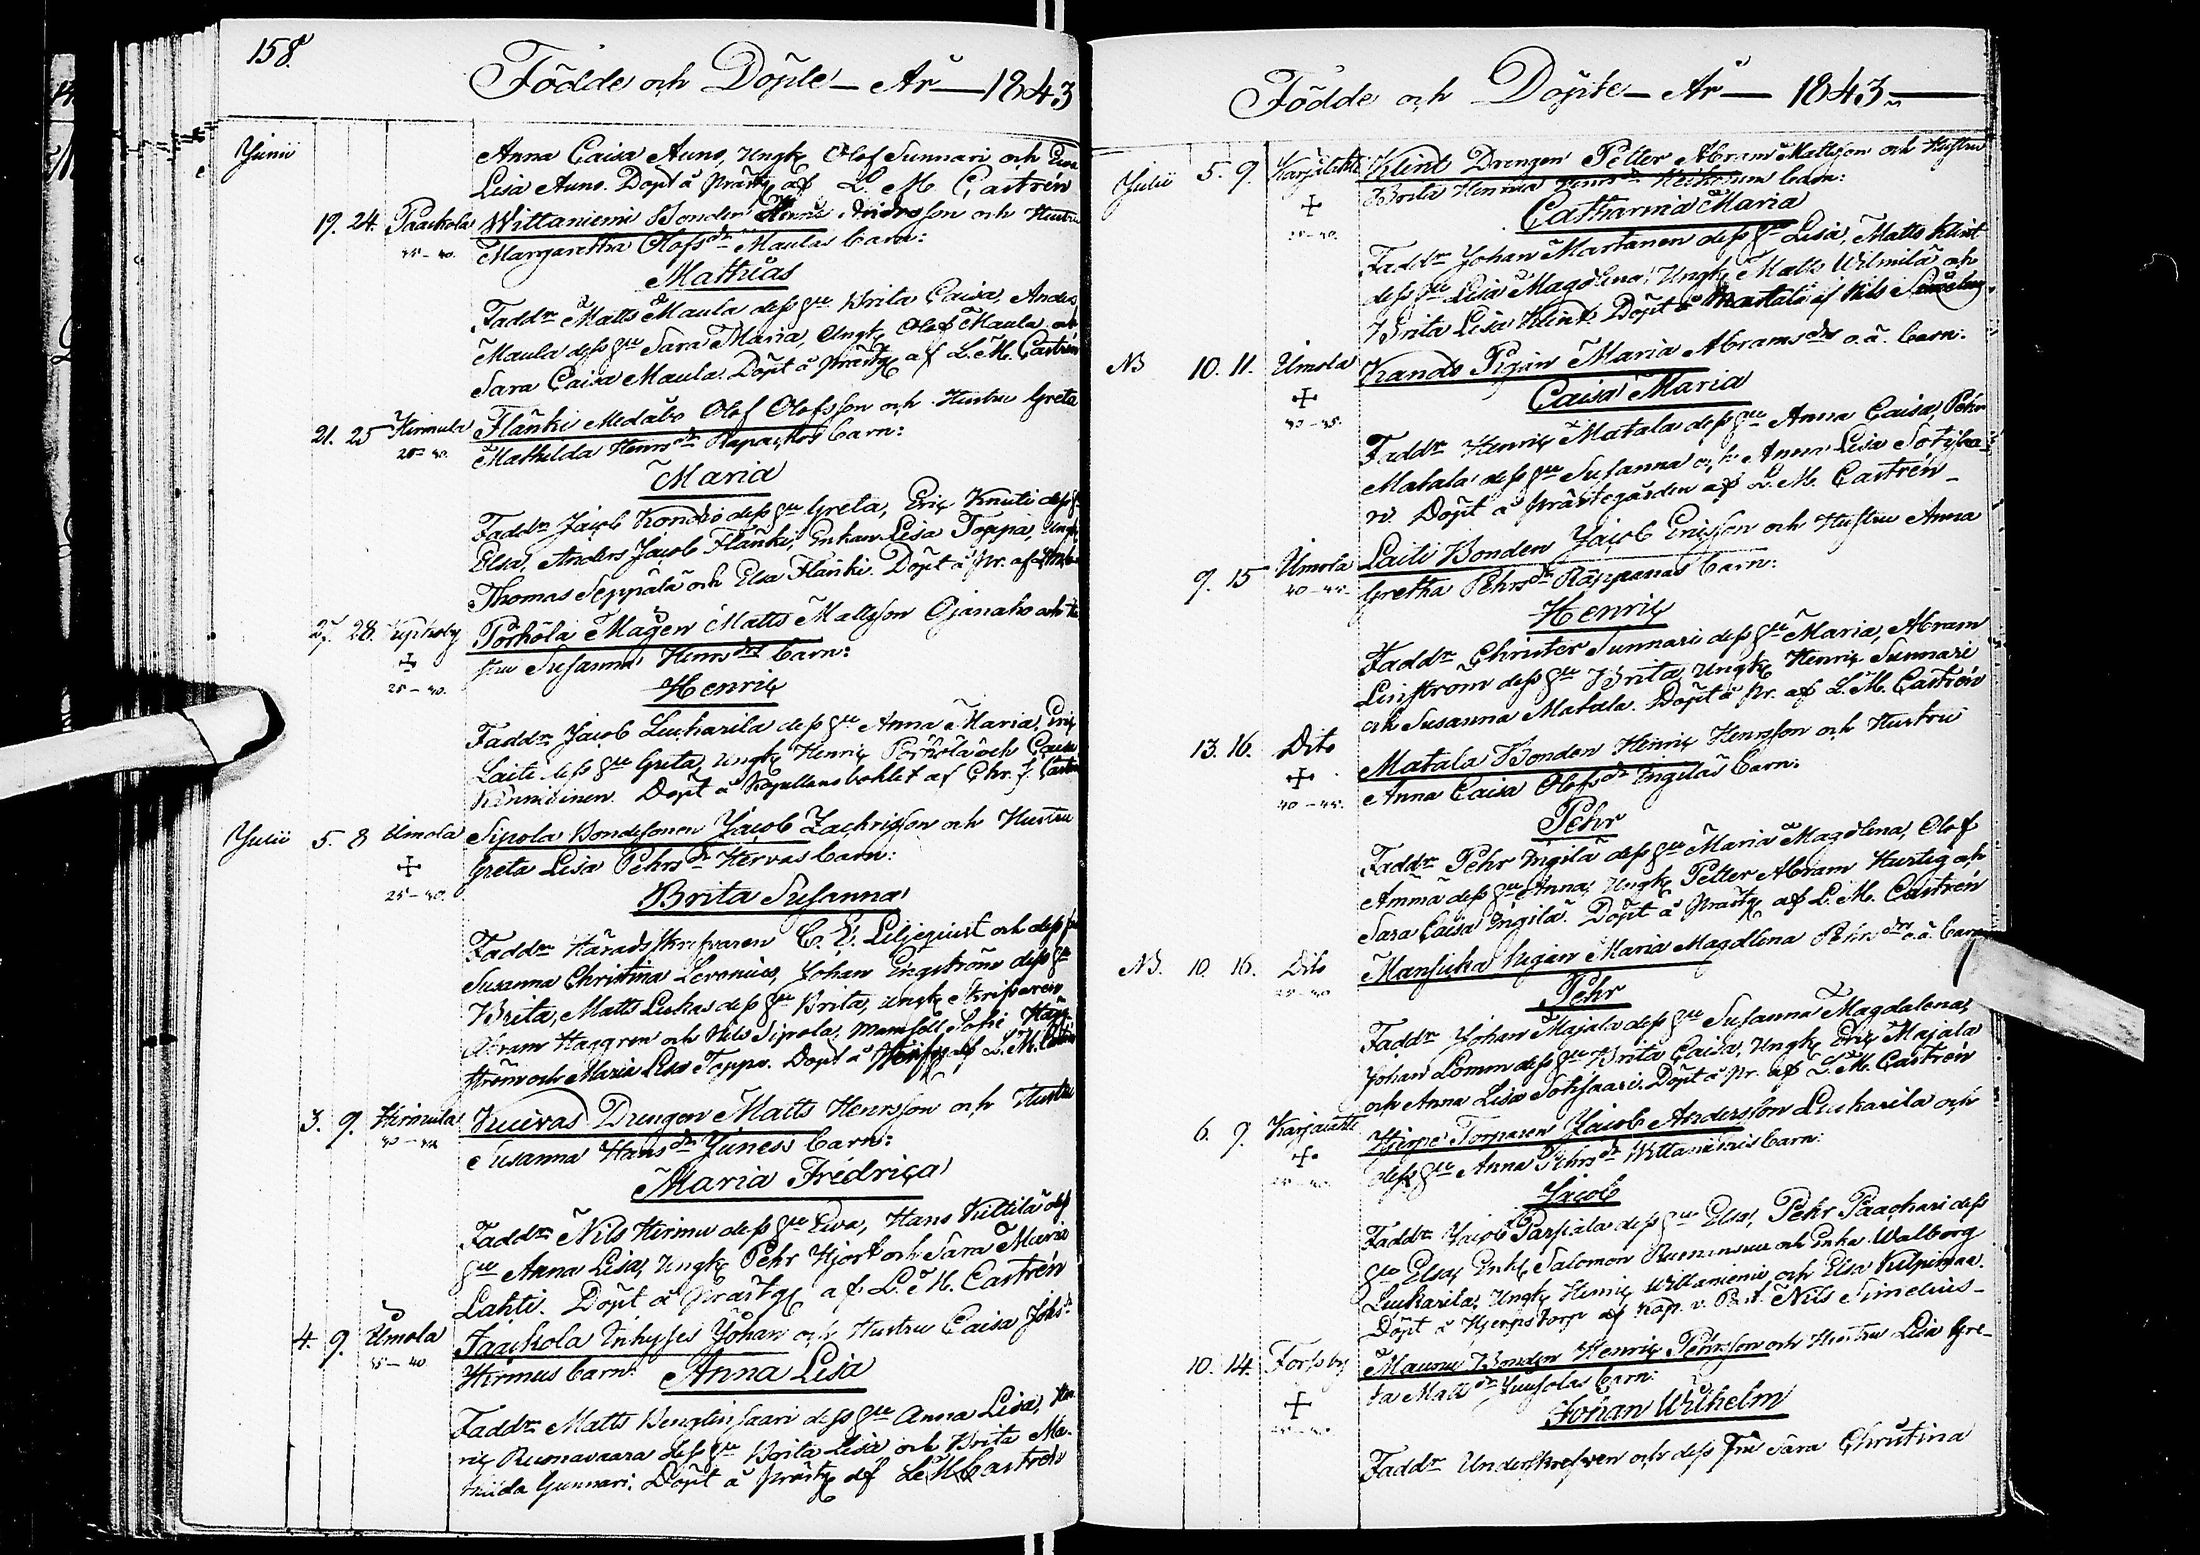 158.
Födde och Döpte – År – 1843
Junii
Anna Caisa Auno, Ungk Olof Sunnari och Ewa
Lisa Auno. Döpt å Prästg af L. M. Castrén
19. 24. Paackola Wittaniemi Bonden Andersson och Hustru
25–30. Margaretha Olofs dr Maulas barn:
Mathias
Faddr Matts Maula dess hu Brita Caisa, Anders
Maula dess hu Sara Maria, Ungk Olof Maula och
Sara Caisa Maula. Döpt å Prästg af L. M. Castrén
21. 25 Hirmula Flänki Medåbo Olof Olofsson och Hustru Greta
25–30. Mathilda Henrs dr Rapackos barn:
Maria
Faddr Jacob Kondio dess hu Greta, Eric Knuti dess hu
Elsa, Anders Jacob Flänki, Enkan Lisa Toppa, Ungk
Thomas Seppälä och Elsa Flänki. Döpt å Pr. af
27. 28. Kyrkoby Pörhölä Mågen Matts Mattsson Ojanaho och Hu
25–30. stru Susanna Henrs dr barn:
Henric
Faddr Jacob Luckarila dess hu Anna Maria, Eric
Laiti dess hu Greta, ungk Henric Pörhölä och Caisa
Kinnuinen. Döpt å Kapellans bohlet af Chr. J. Castrén
Julii 5. 8 Umola Sipola Bondesonen Jacob Zachrisson och Hustru
25–30. Greta Lisa Pehrs dr Kervas barn:
Brita Susanna
Faddr Häradsskrifvaren C. E. Liljequist och dess fru
Susanna Christina Leronius, Johan Engström dess hu
Brita, Matts Liukas dess hu Brita, ungk Skrifvaren
Abram Haggren och Nils Sipola, Mamsell Sofie
ström och Maria Lisa Toppa. Döpt å af L. M. Castrén
3. 9. Hirmula Kuivas Drengen Matts Henrsson och Hustru
Susanna Hans dr Juness barn:
Maria Fredrica
Faddr Nils Hirmu dess hu Ewa, Hans Kittilä dess
hu Anna Lisa, Ungk Pehr Hjort och Sara Maria
Lahti. Döpt å Prästg af L. M. Castrén
4. 9. Umola Jaackola Inhyses Johan och Hustru Caisa Johs dr
35–40 Hirmus barn: Anna Lisa
Faddr Matts Wenglinsaari dess hu Anna Lisa, Hen-
ric Ruonavaara dess hu Brita Lisa och Brita Ma-
thilda Gunnari. Döpt å Prästg af L. M. Castrén
Födde och Döpte – År – 1843
Julii 5. 9. Karjalahti Klint Drengen Petter Abram Mattsson och Hustru
Brita Henrica Henrs dr Heikkinens barn:
Catharina Maria
Faddr Johan Martanen dess hu Lisa, Matts Klint
dess hu Lisa Magdlena, Ungk Matts Wilmilä och
Brita Lisa Klint. Döpt å Martala af Nils Simelius
NB 10. 11. Umola Kando Pigan Maria Abrams drs o.ä. barn:
Caisa Maria
Faddr Henric Matala dess hu Anna Caisa, Pehr
Matala dess hu Susanna och Anna Lisa Sotisaa-
ri. Döpt å Prästegården af L. M. Castrén
9. 15 Umola Laiti Bonden Jacob Ericsson och Hustru Anna
40–45. Gretha Pehrs dr Räppänas barn:
Henric
Faddr Christer Sunnari dess hu Maria, Abram
Linström dess hu Brita, Ungk Henric Sunnari
och Susanna Matala. Döpt å Pr. af L. M. Castrén
13. 16. Dito Matala Bonden Henric Henrsson och Hustru
40–45. Anna Caisa Olofs dr Ingiläs barn:
Pehr
Faddr Pehr Ingilä dess hu Maria Magdlena, Olof
Ämmä dess hu Anna, Ungk Petter Abram Hurtig och
Sara Caisa Ingilä. Döpt å Prästg af L. M. Castrén
NB. 10. 16. Dito Mansicka Pigan Maria Magdlena Pehrs drs o.ä. barn
Pehr
Faddr Johan Majala dess hu Susanna Magdalena,
Johan Lomm dess hu Brita Caisa, Ungk Eric Majala
och Anna Lisa Sotisaari. Döpt å Pr. af L. M. Castrén
6. 9. Karjalahti Hjerpe Torparen Jacob Andersson Luckarila och
dess hu Anna Pehrs dr Wittaniemis barn:
Jacob
Faddr Jacob Parsiala dess hu Elsa, Pehr Paackari dess
hu Elsa, Enkl Salomon och Enka Walborg
Luckarila, Ungk Henric Wittaniemi och Elsa Kulpinaa.
Döpt å Hjerpetorp af Kap. v. Past. Nils Simelius
10. 14. Forssby Maunu Bonden Henric Pehrsson och Hustru Lisa Gre-
ta Matts dr Juusolas barn:
Johan Wilhelm
Faddr Underskrefven och dess Fru Sara Christina